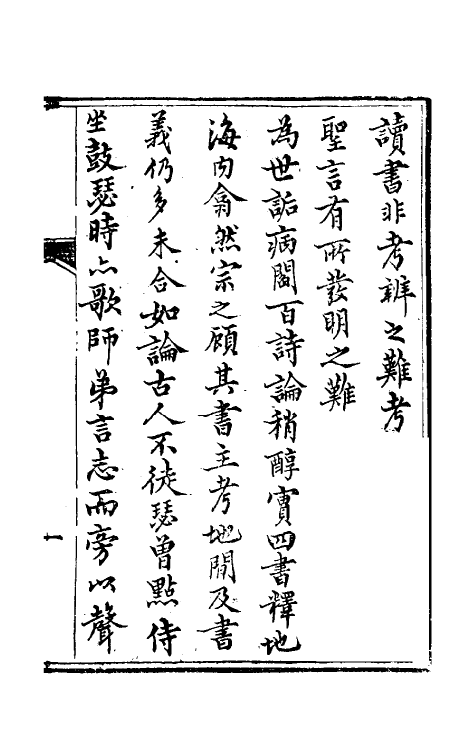 讀書非考辨之難考
聖言有所發明之難
為世詬病閻百詩論稍醇實四書釋地
海內翕然宗之顧其書主考地間及書
義仍多未合如論古人不徒瑟曾點侍
坐鼓瑟時亦歌師弟言志而旁以聲
一